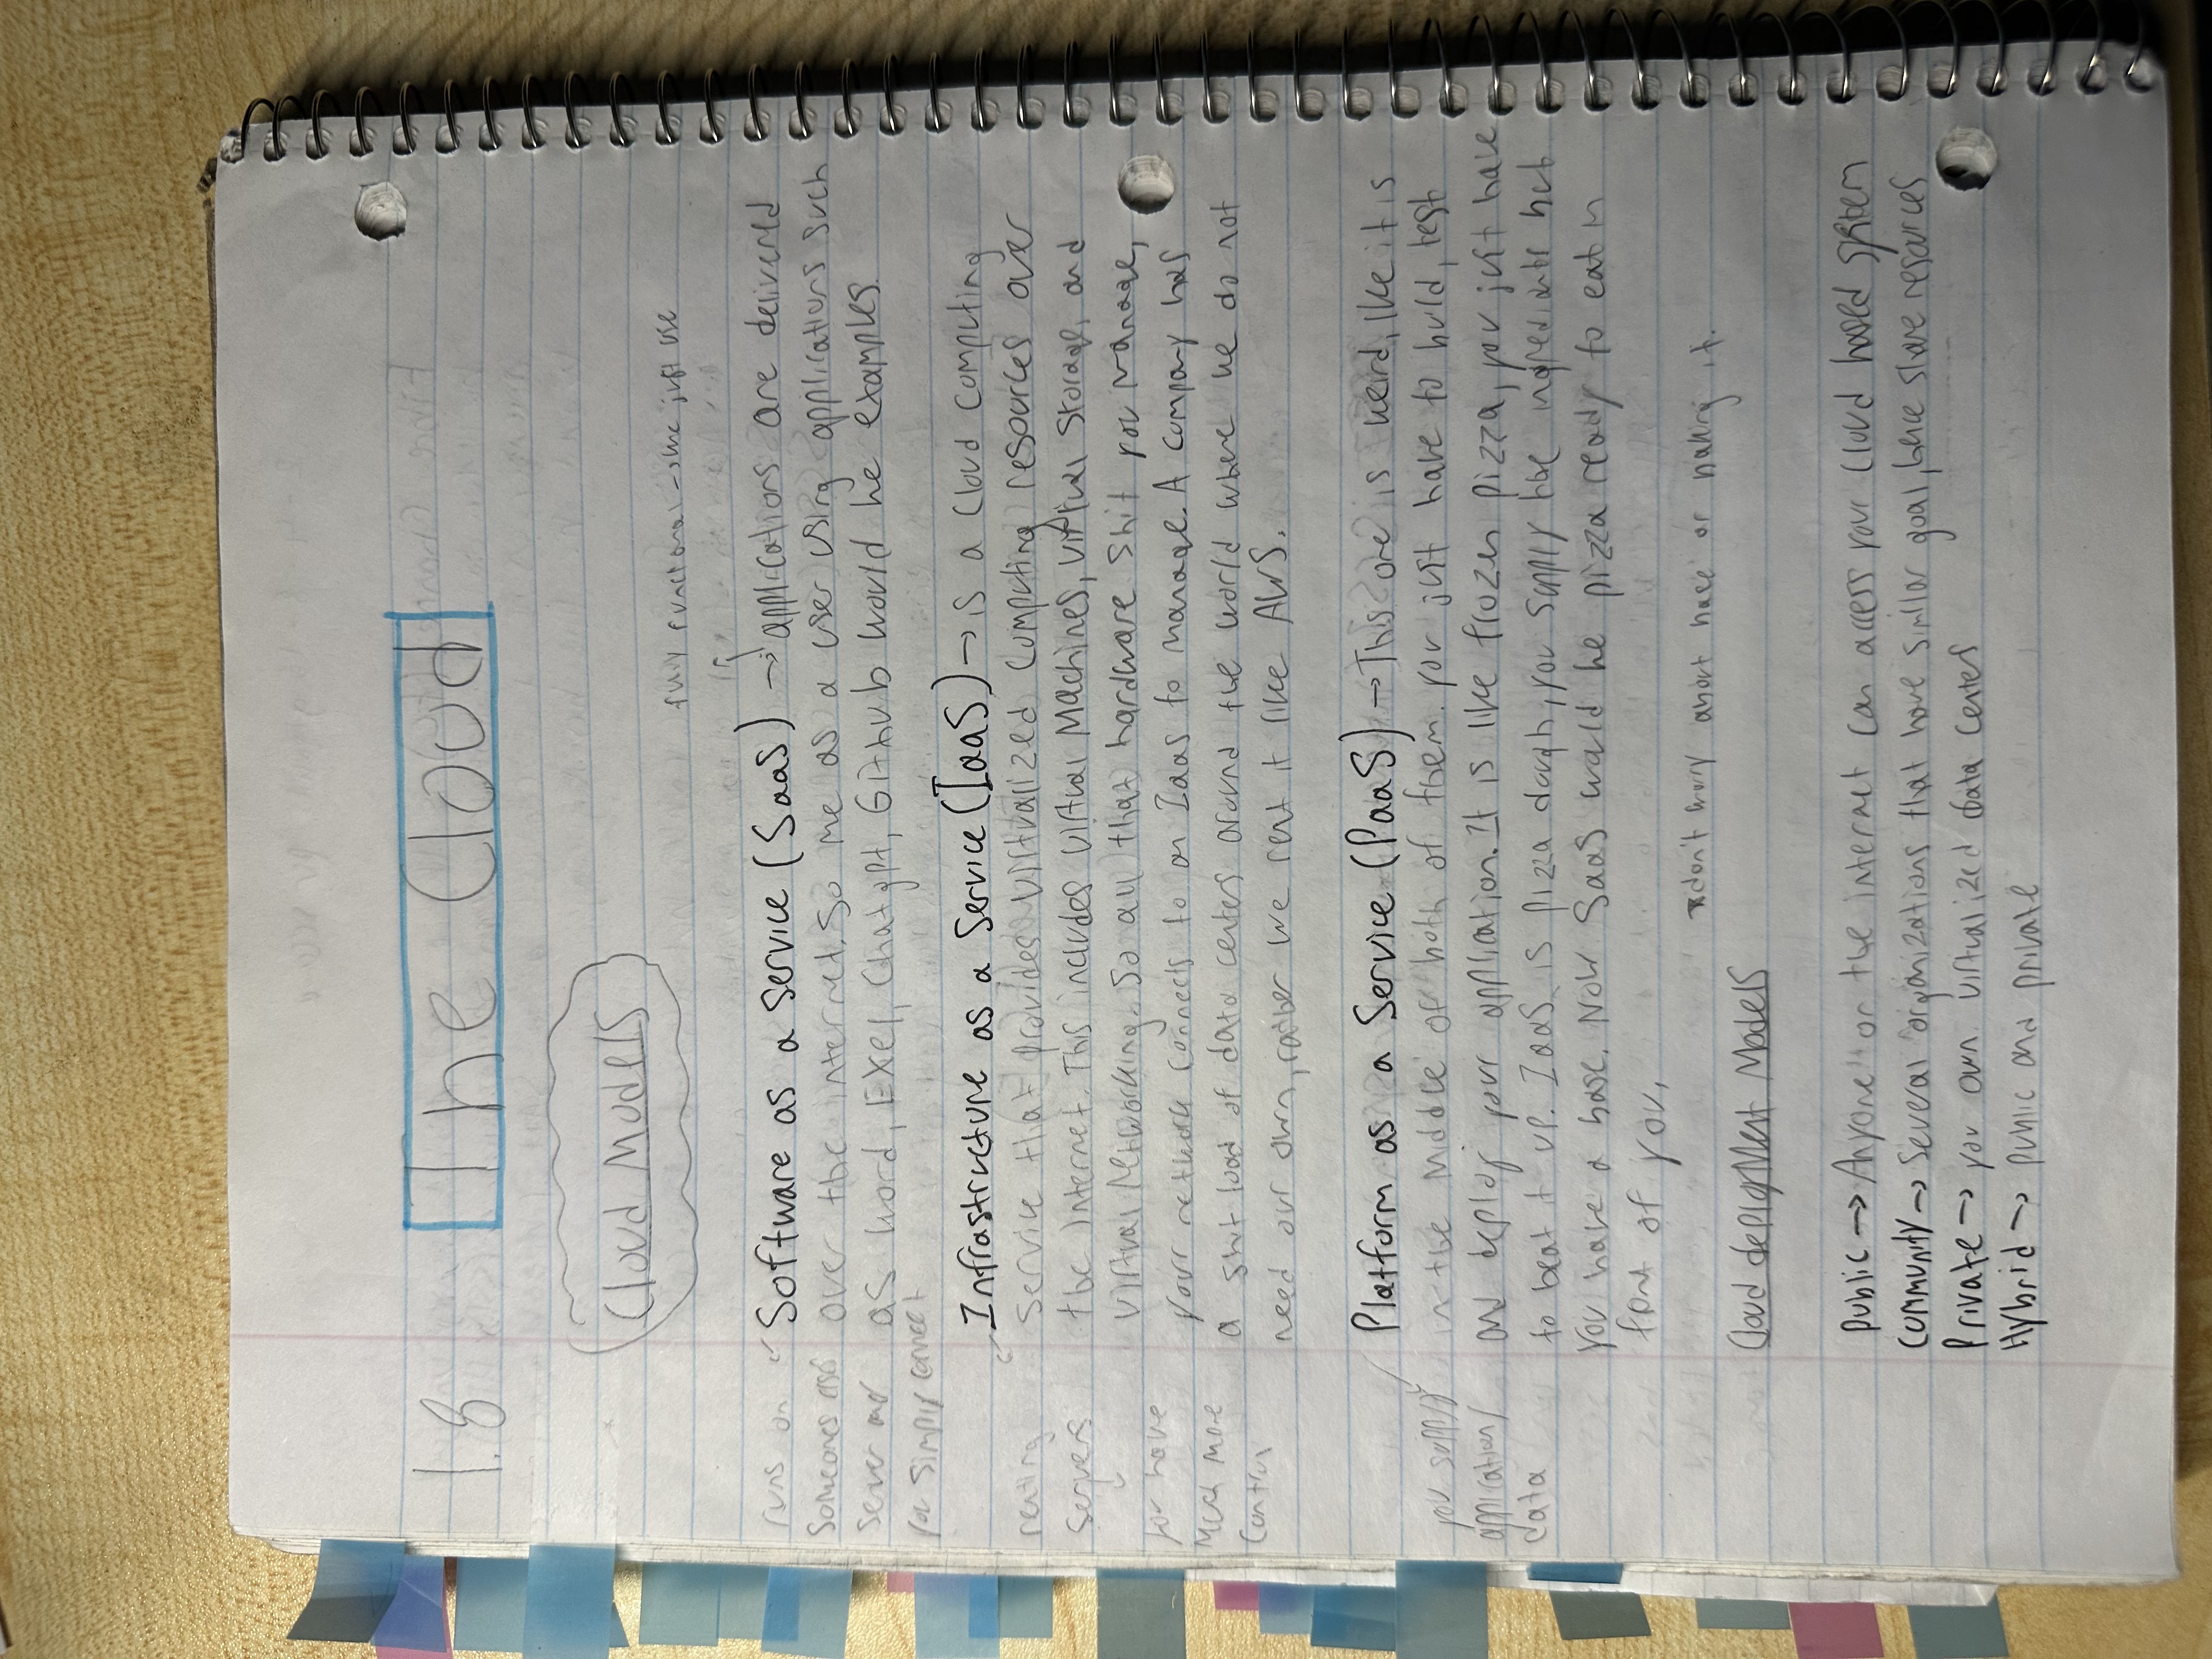 1.8 The Cloud
Cloud Models
fully functional → we just use
Software as a Service (SaaS) → applications are delivered
over the internet. So me as a user using applications such
as Word, Exel, Chatgpt, Github would be examples.
runs on
Someones else
Server and
you simply connect
Infrastructure as a Service (IaaS) → is a Cloud Computing
Service that provides virtualized Computing resources over
the internet. This includes Virtual Machines, Virtual Storage, and
Virtual Networking. So all that hardware shit you Manage,
your network connects to an Iaas to manage. A company has
a shit load of data centers around the world where we do not
need our own, rather we rent it like AWS.
renting
Servers
you have
Much more
Control
Platform as a Service (PaaS) → This one is weird, like it is
in the Middle of both of them. you just have to build, test
and deploy your application. It is like frozen pizza, you just have
to heat it up. IaaS is pizza dough, you supply the ingredients but
you have a base. Now SaaS would be pizza ready to eat in
font of you,
you supply
application/
data
*don't worry about base or making it.
Cloud deployMent Models
Public → Anyone on the internet can access your cloud based system
Community → Several organizations that have similar goal, hence share resources
Private → you own virtualized data centers
Hybrid → public and private